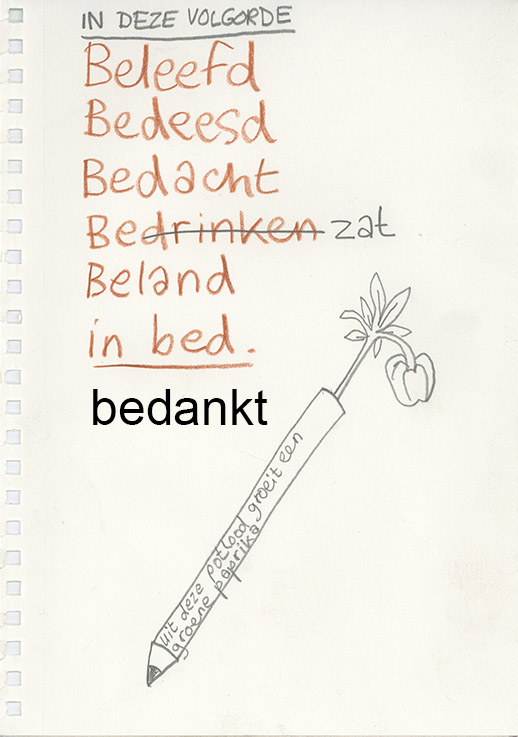 IN DEZE VOLGORDE
Beleefd
Bedeesd
Bedacht
Bedrinken zat
Beland
in bed.
bedankt
uit deze potlood groeit een
groene paprika